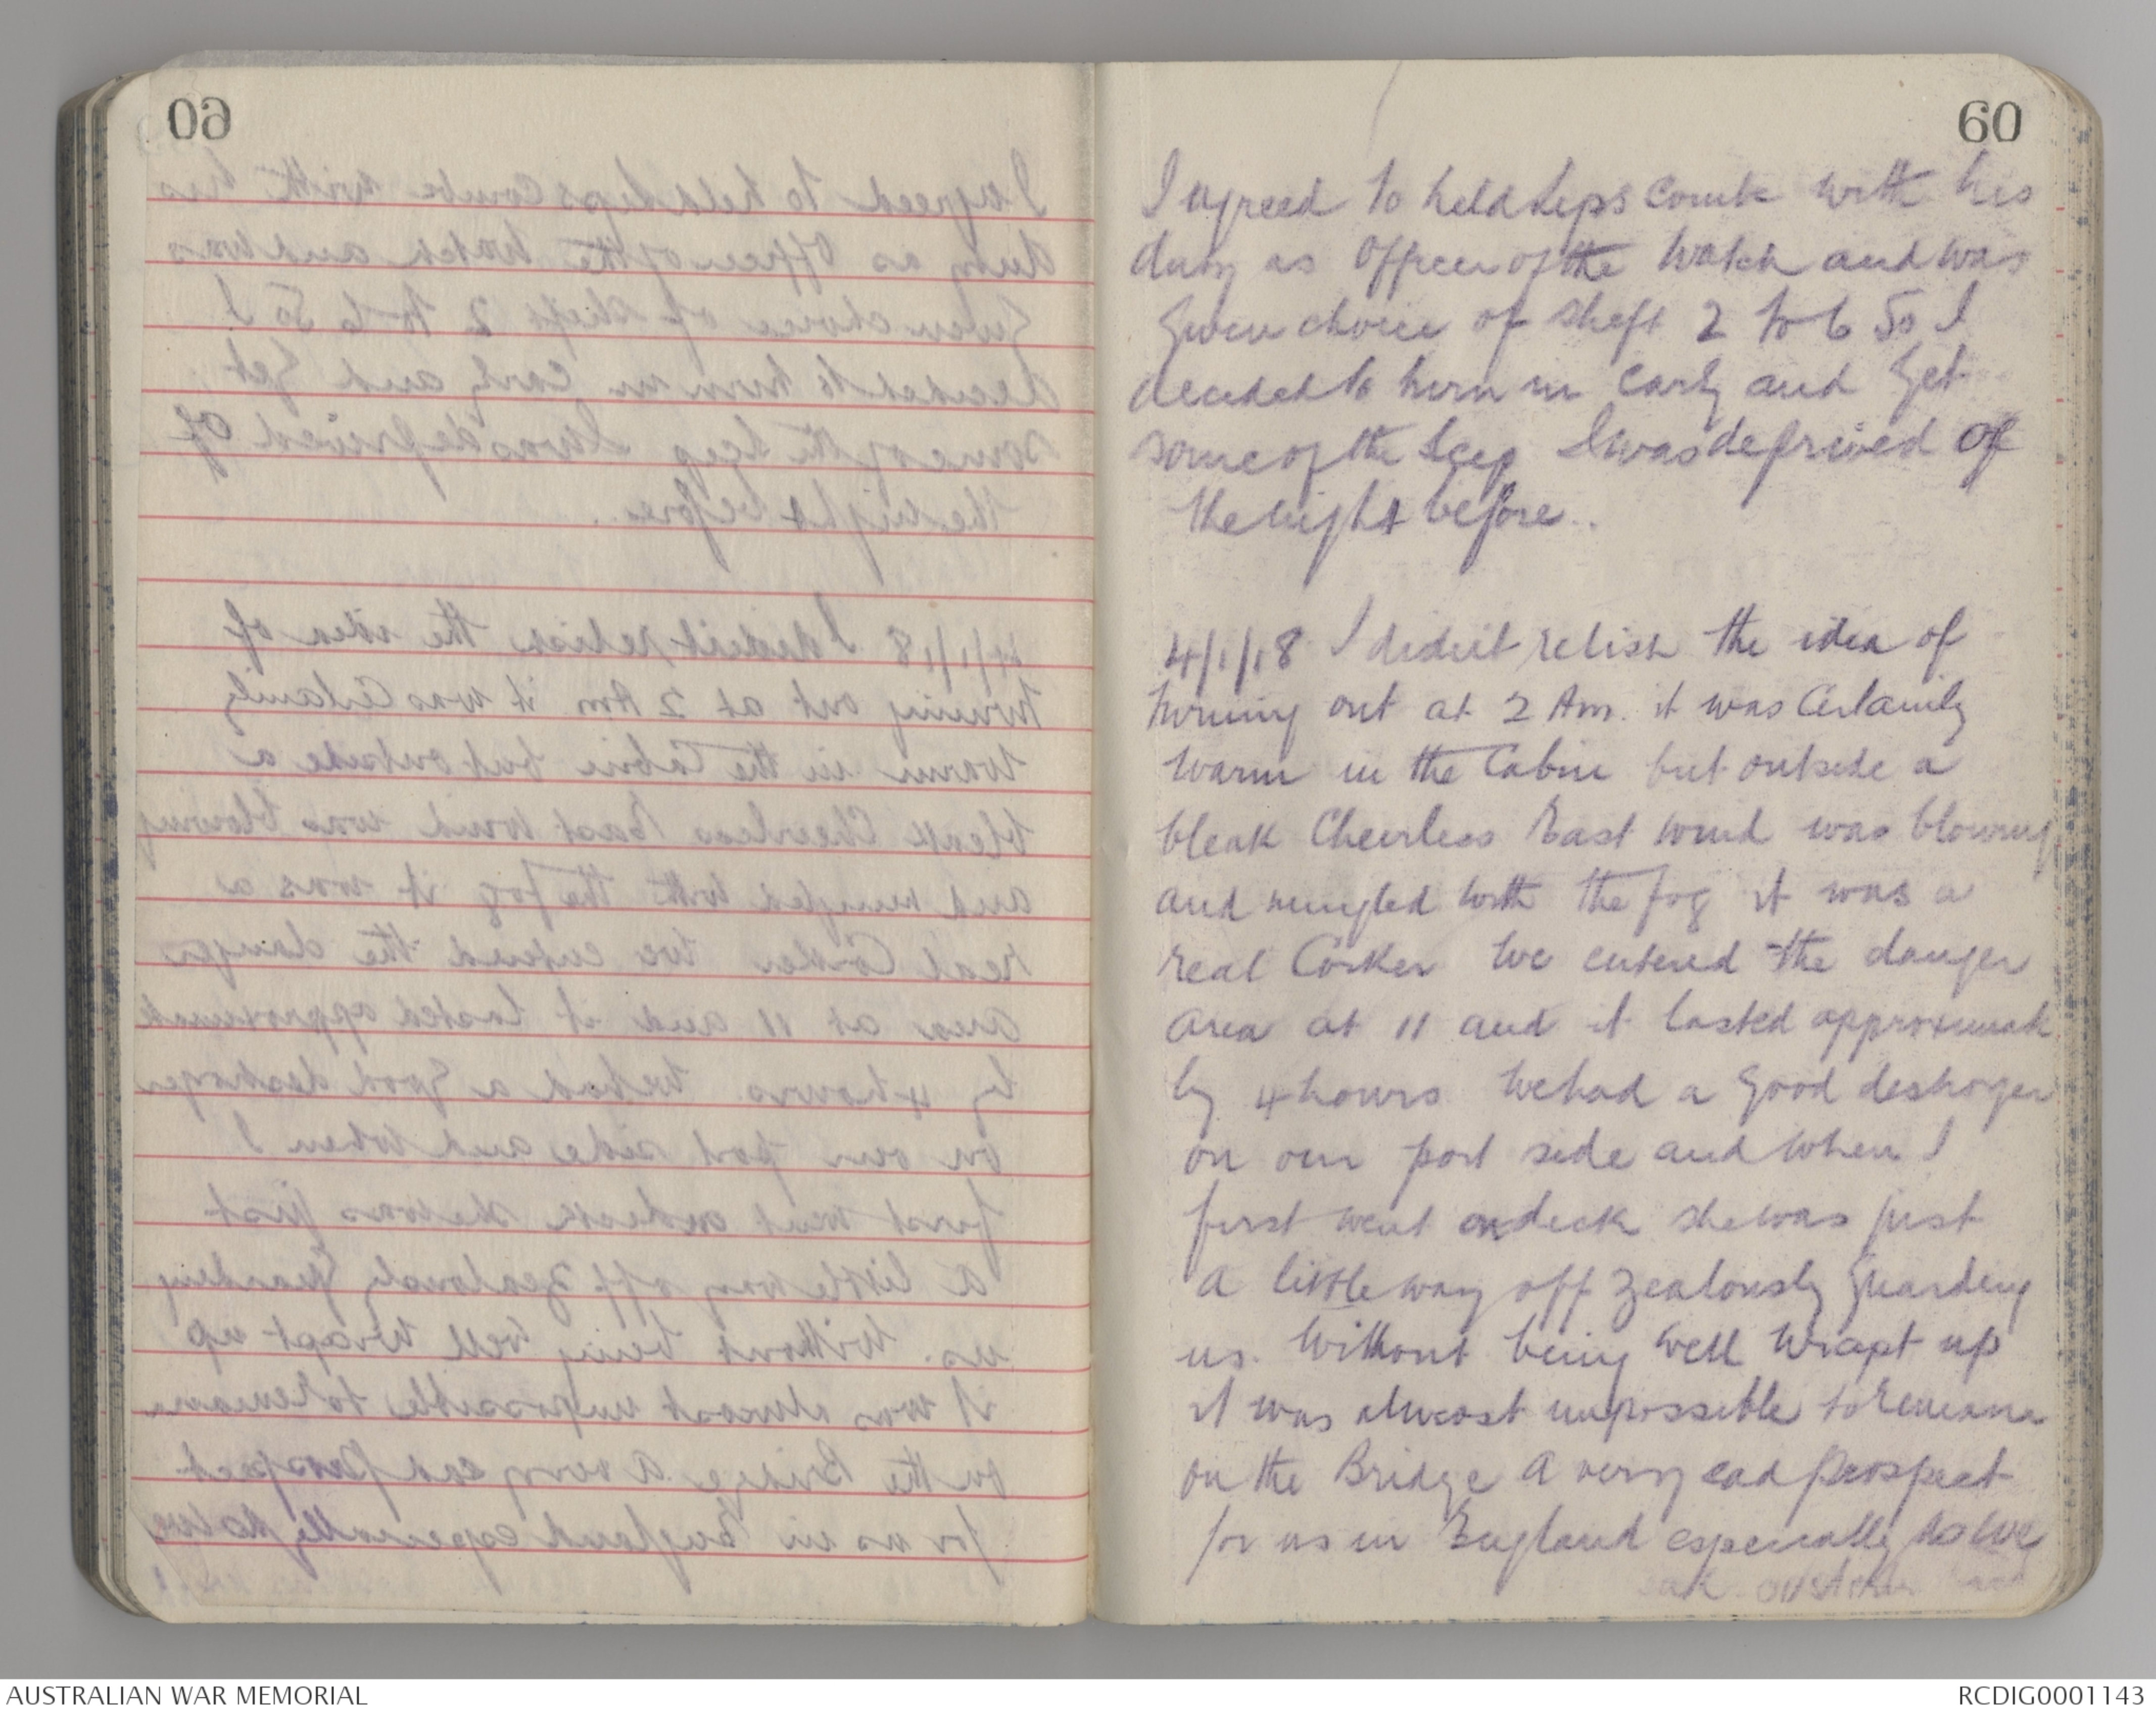 60
I agreed to held Lipscomb with his
duty as Officer of the Watch and was
given choice of shift 2 to 6 So I
decided to turn in early and get
some of the sleep I was deprived of
the night before.
4/1/18 I didn't relish the idea of
turning out at 2 Am. it was Certainly
warm in the Cabin but outside a
bleak Cheerless East wind was blowing
and mingled with the fog it was a
real Corker We entered the danger
area at 11 and it lasted approximate
ly 4 hours We had a good destroyer
on our port side and when I
first went on deck she was just
a little way off zealously guarding
us. Without being well wrapt up
it was almost impossible to remain
on the Bridge A very sad prospect
for us in England especially as we
AUSTRALIAN WAR MEMORIAL
RCDIG0001143